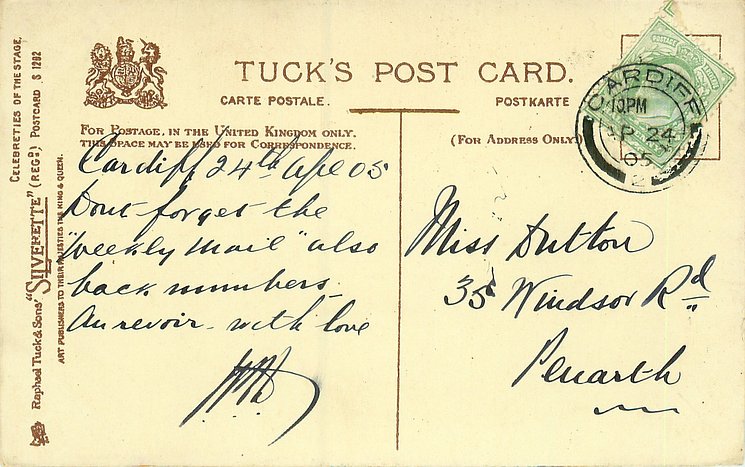 TUCK'S POST CARD.
CARTE POSTALE.
POSTKARTE
FOR POSTAGE, IN THE UNITED KINGDOM ONLY,
THIS SPACE MAY BE USED FOR CORRESPONDENCE.
(FOR ADDRESS ONLY.)
CARDIFF
AP 24
05
2
Cardiff 24th Apl 05
Dont forget the
"Weekly Mail" also
back numbers
Au revoir - with love
Miss Dutton
35 Windsor Rd
Penarth
CELEBRETIES OF THE STAGE.
Raphael Tuck & Sons' "SILVERETTE" (REGD.) POSTCARD S 1292
ART PUBLISHERS TO THEIR MAJESTIES THE KING & QUEEN.